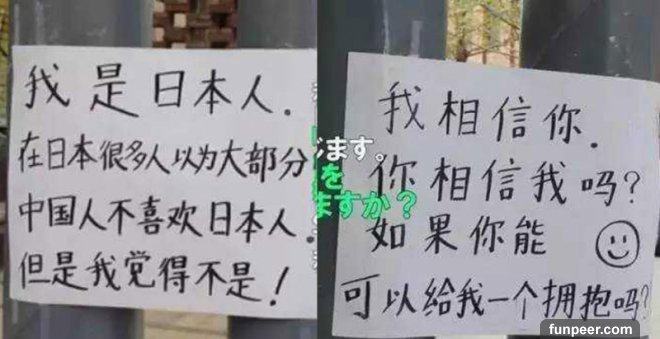 我是日本人.
在日本很多人以为大部分
中国人不喜欢日本人.
但是我觉得不是!
じます。
を
ますか?
我相信你.
你相信我吗?
如果你能
可以给我一个拥抱吗?
funpeer.com